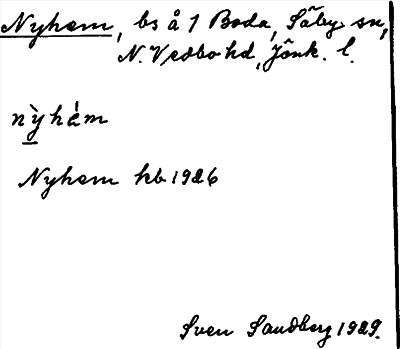 Nyhem, bs å 1 Boda, Säby sn,
N. Vedbo hd, Jönk. l.
nỳhém
Nyhem kb 1926
Sven Sandberg 1929.